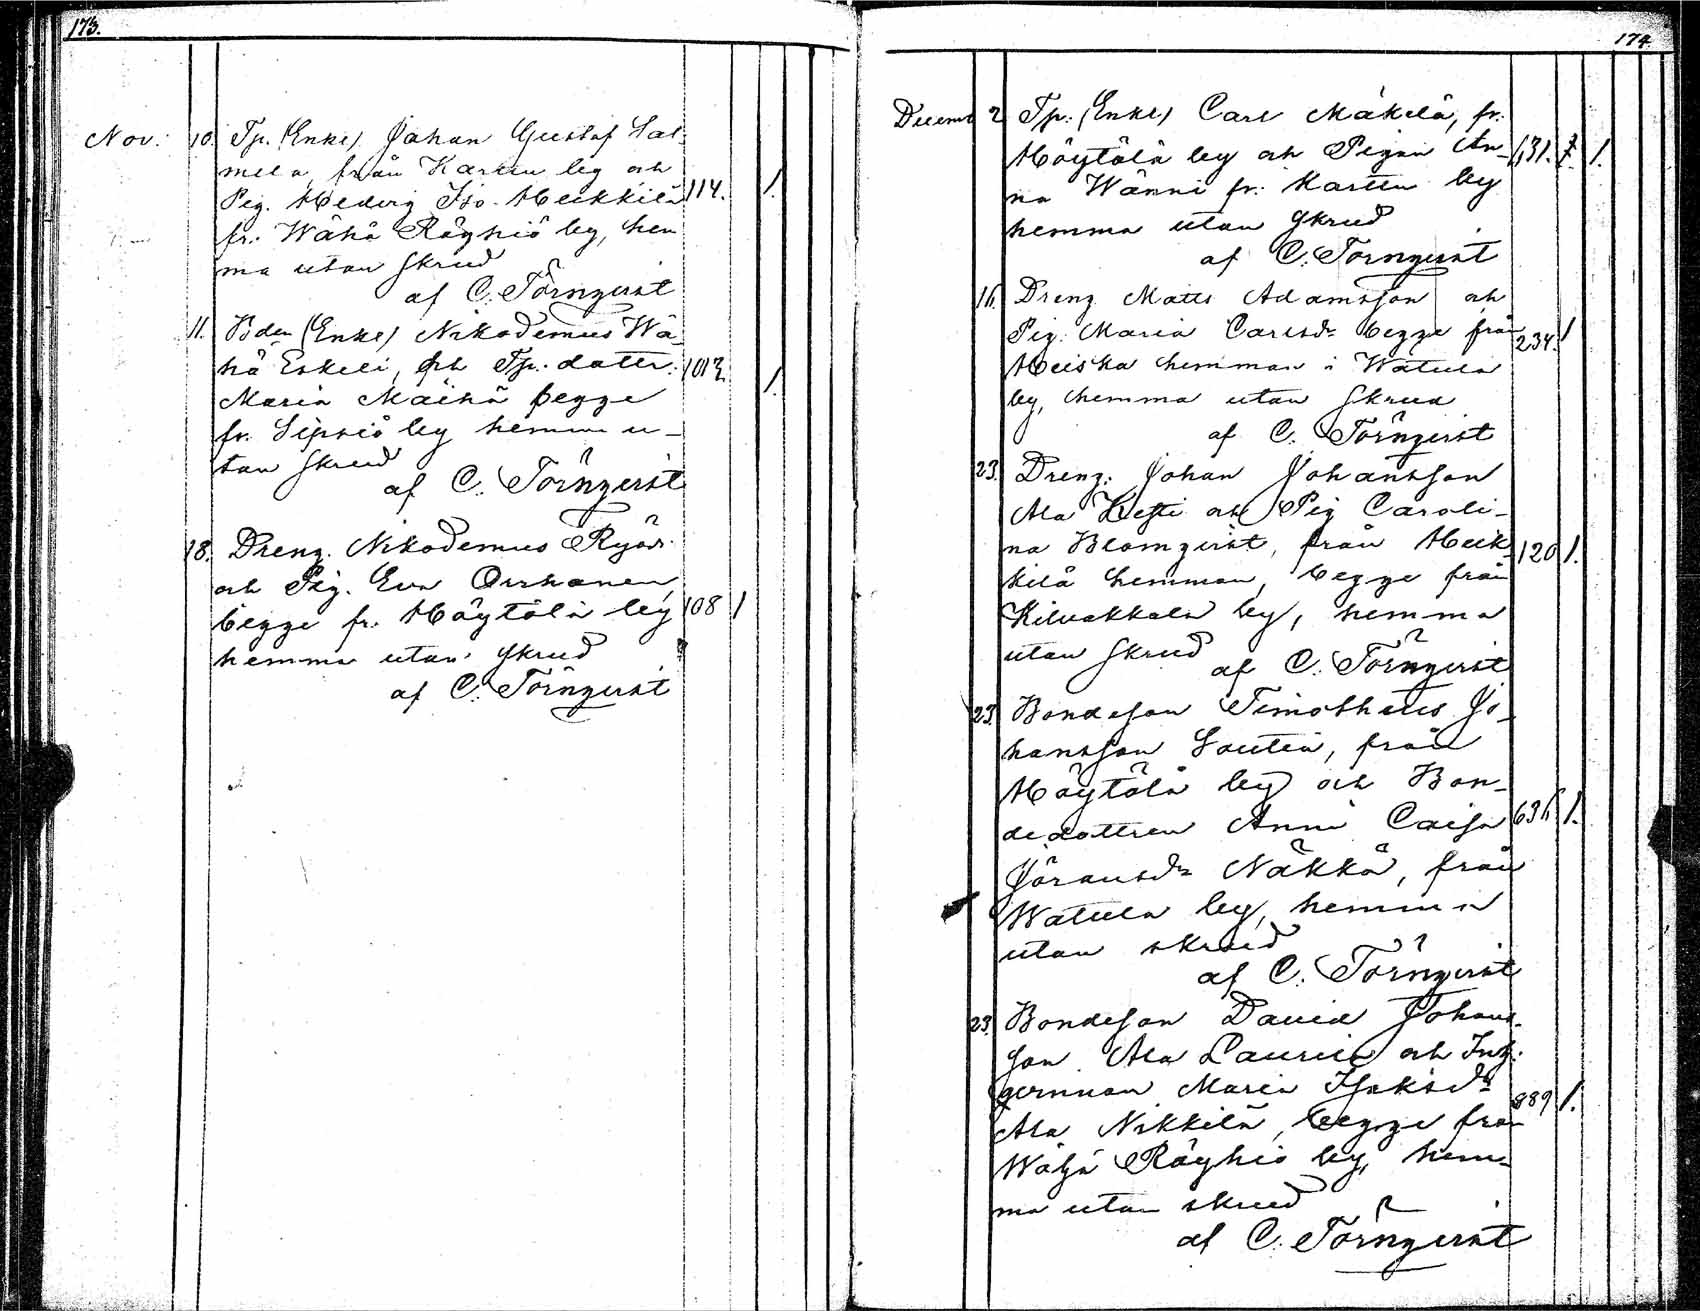 173.
Nov: 10. Tp. (Enkl) Johan Gustaf Sal-
mela, från Karttu by och
Pig. Hedvig Iso-Heikkilä 114. 1.
fr. Wähä Röyhiö by, hem
ma utan skrud
af C. Törnqvist
11. Bden (Enkl) Nikodemus Wä-
hä Eskeli, och Tp. dottr.
Maria Maihä begge
fr. Sipsiö by hemma u-
tan skrud
af C. Törnqvist
18. Dreng. Nikodemus
och Pig. Eva Orrhanen,
begge fr. Höytölä by 108 1
hemma utan skrud
af C. Törnqvist
174.
Decemb 2 Tp. (Enkl) Carl Mäkelä, fr.
Höytölä by och Pigan An- 131. 1.
na Wänni fr. Karttu by
hemma utan skrud
af C. Törnqvist
16. Dreng Matts Adamsson och
Pig. Maria Carlsdr begge från
Heiska hemman i Watula 234. 1
by, hemma utan skrud
af C. Törnqvist
23. Dreng. Johan Johansson
Ala och Pig Caroli-
na Blomqvist, från Heik- 120 1.
kilä hemman, begge från
Kilvakkala by, hemma
utan skrud
af C. Törnqvist
23. Bondeson Timotheus Jo-
hansson Soutea, från
Höytölä by och Bon-
dedottren Anna Caisa 636 1.
Jöransdr Näkkä, från
Watula by, hemma
utan skrud
af C. Törnqvist
23. Bondeson David Johans-
son Ala Laurila och Inh.
Maria Isaksdr
Ala Nikkilä, begge från 889 1.
Wähä Röyhiö by, hem-
ma utan skrud
af C. Törnqvist